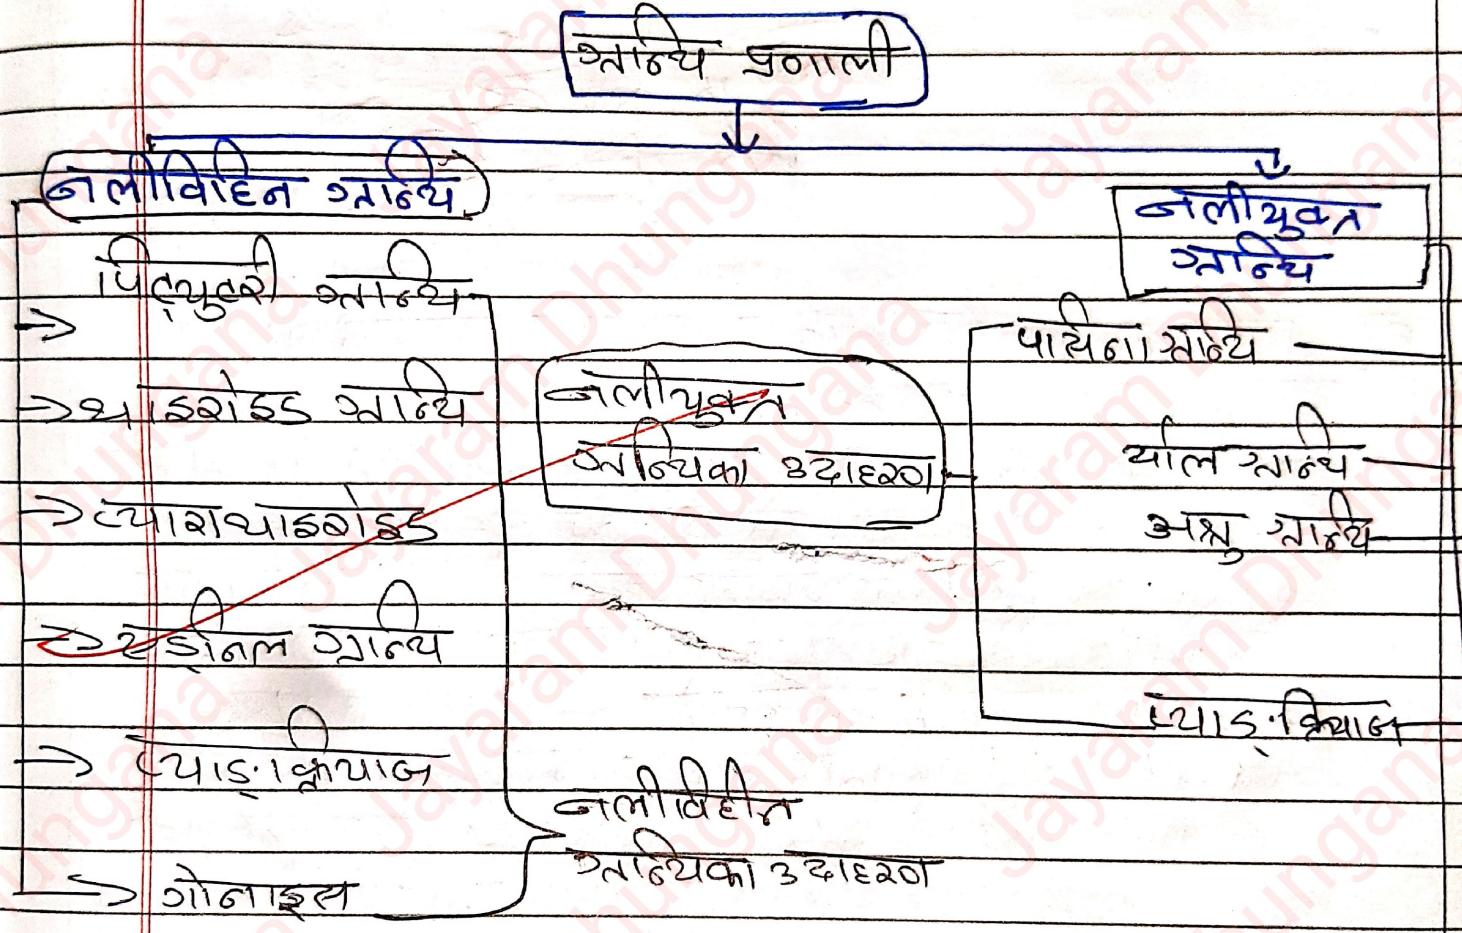 ग्रन्थि प्रणाली
नलीविहिन ग्रन्थि
नलीयुक्त
ग्रन्थि
पिट्युटरी ग्रन्थि
थाइरोइड ग्रन्थि
प्याराथाइरोइड
एड्रीनल ग्रन्थि
प्याङ्क्रियाज
गोनाड्स
नलीयुक्त
ग्रन्थिका उदाहरण
नलीविहीन
ग्रन्थिका उदाहरण
पसिना ग्रन्थि
र्याल ग्रन्थि
अश्रु ग्रन्थि
प्याङ्क्रियाज
Jayaram Dhungana